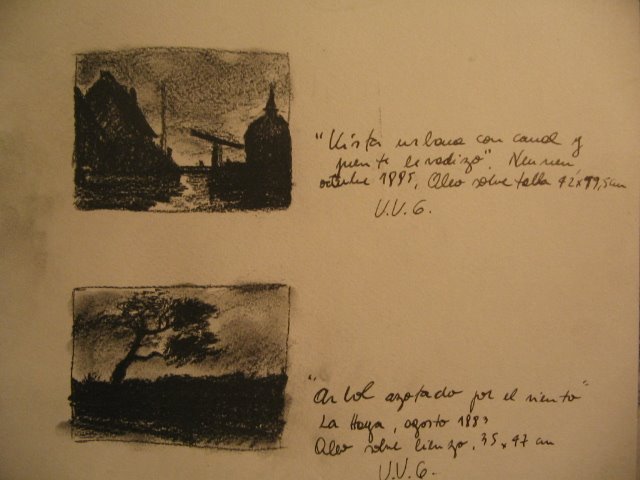 "Vista urbana con canal y
puente levadizo". Nuenen
octubre 1885, Oleo sobre tabla 42x49,5cm
V.V.G.
"Arbol azotado por el viento"
La Haya, agosto 1883
Oleo sobre lienzo, 35x47 cm
V.V.G.